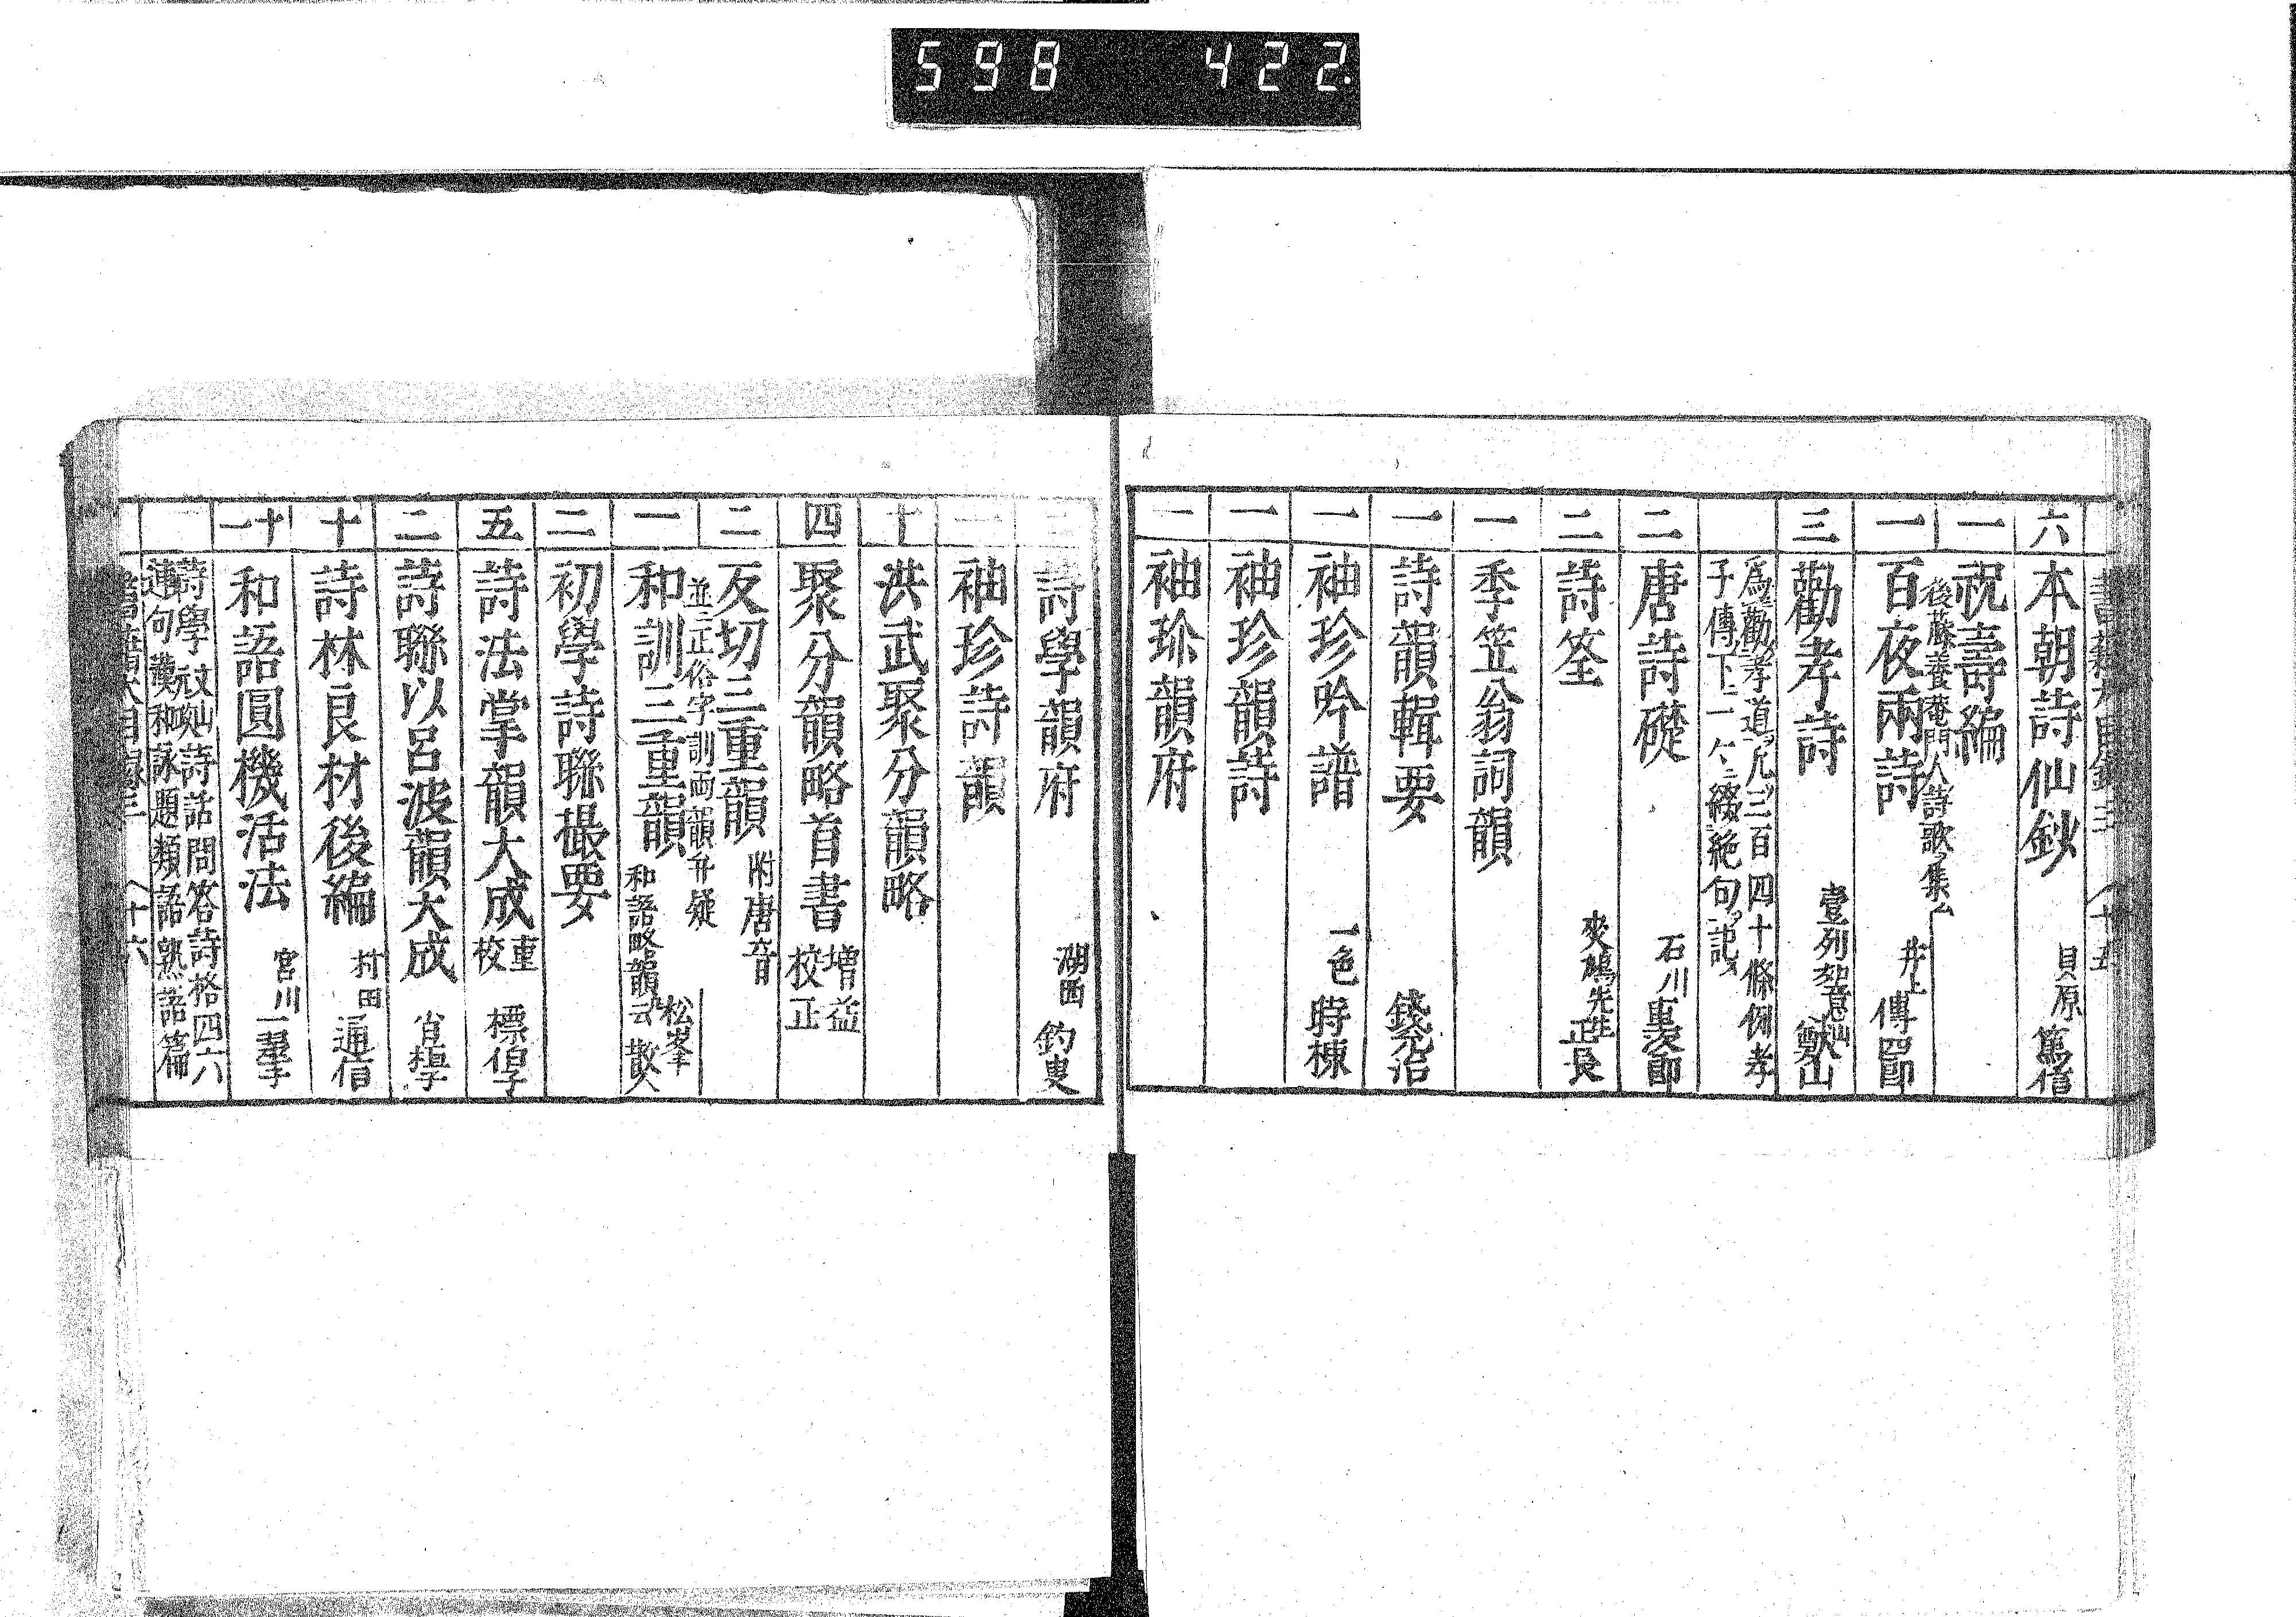 598 422
六 本朝詩仙鈔 貝原 篤信
一 祝壽編
後藤養菴門人詩歌ヲ集ム
一 百夜兩詩 井上
三 勸孝詩
爲ニ勸孝道ヲ凡三百四十條例孝
子傳下ニ一々ニ綴絶句ヲ記ス
二 唐詩礎 石川
二 詩筌 先生 正長
一 季笠翁詞韻
一 詩韻輯要
一 袖珍吟譜 一色 時棟
一 袖珍韻詩
一 袖珍韻府
三 詩學韻府 湖西 釣叟
一 袖珍詩韻
十 洪武聚分韻略
四 聚分韻略首書 増益 校正
二 反切三重韻 附唐音
並ニ正俗字訓両韻弁疑
一 和訓三重韻 和語略韻云 松峯 散人
二 初學詩聯撮要
五 詩法掌韻大成 重校
二 詩聯以呂波韻大成
十 詩林良材後編 村田 通信
十一 和語圓機活法 宮川
詩學 詩話問答詩格四六
連句漢和詠題類語熟語篇
十六